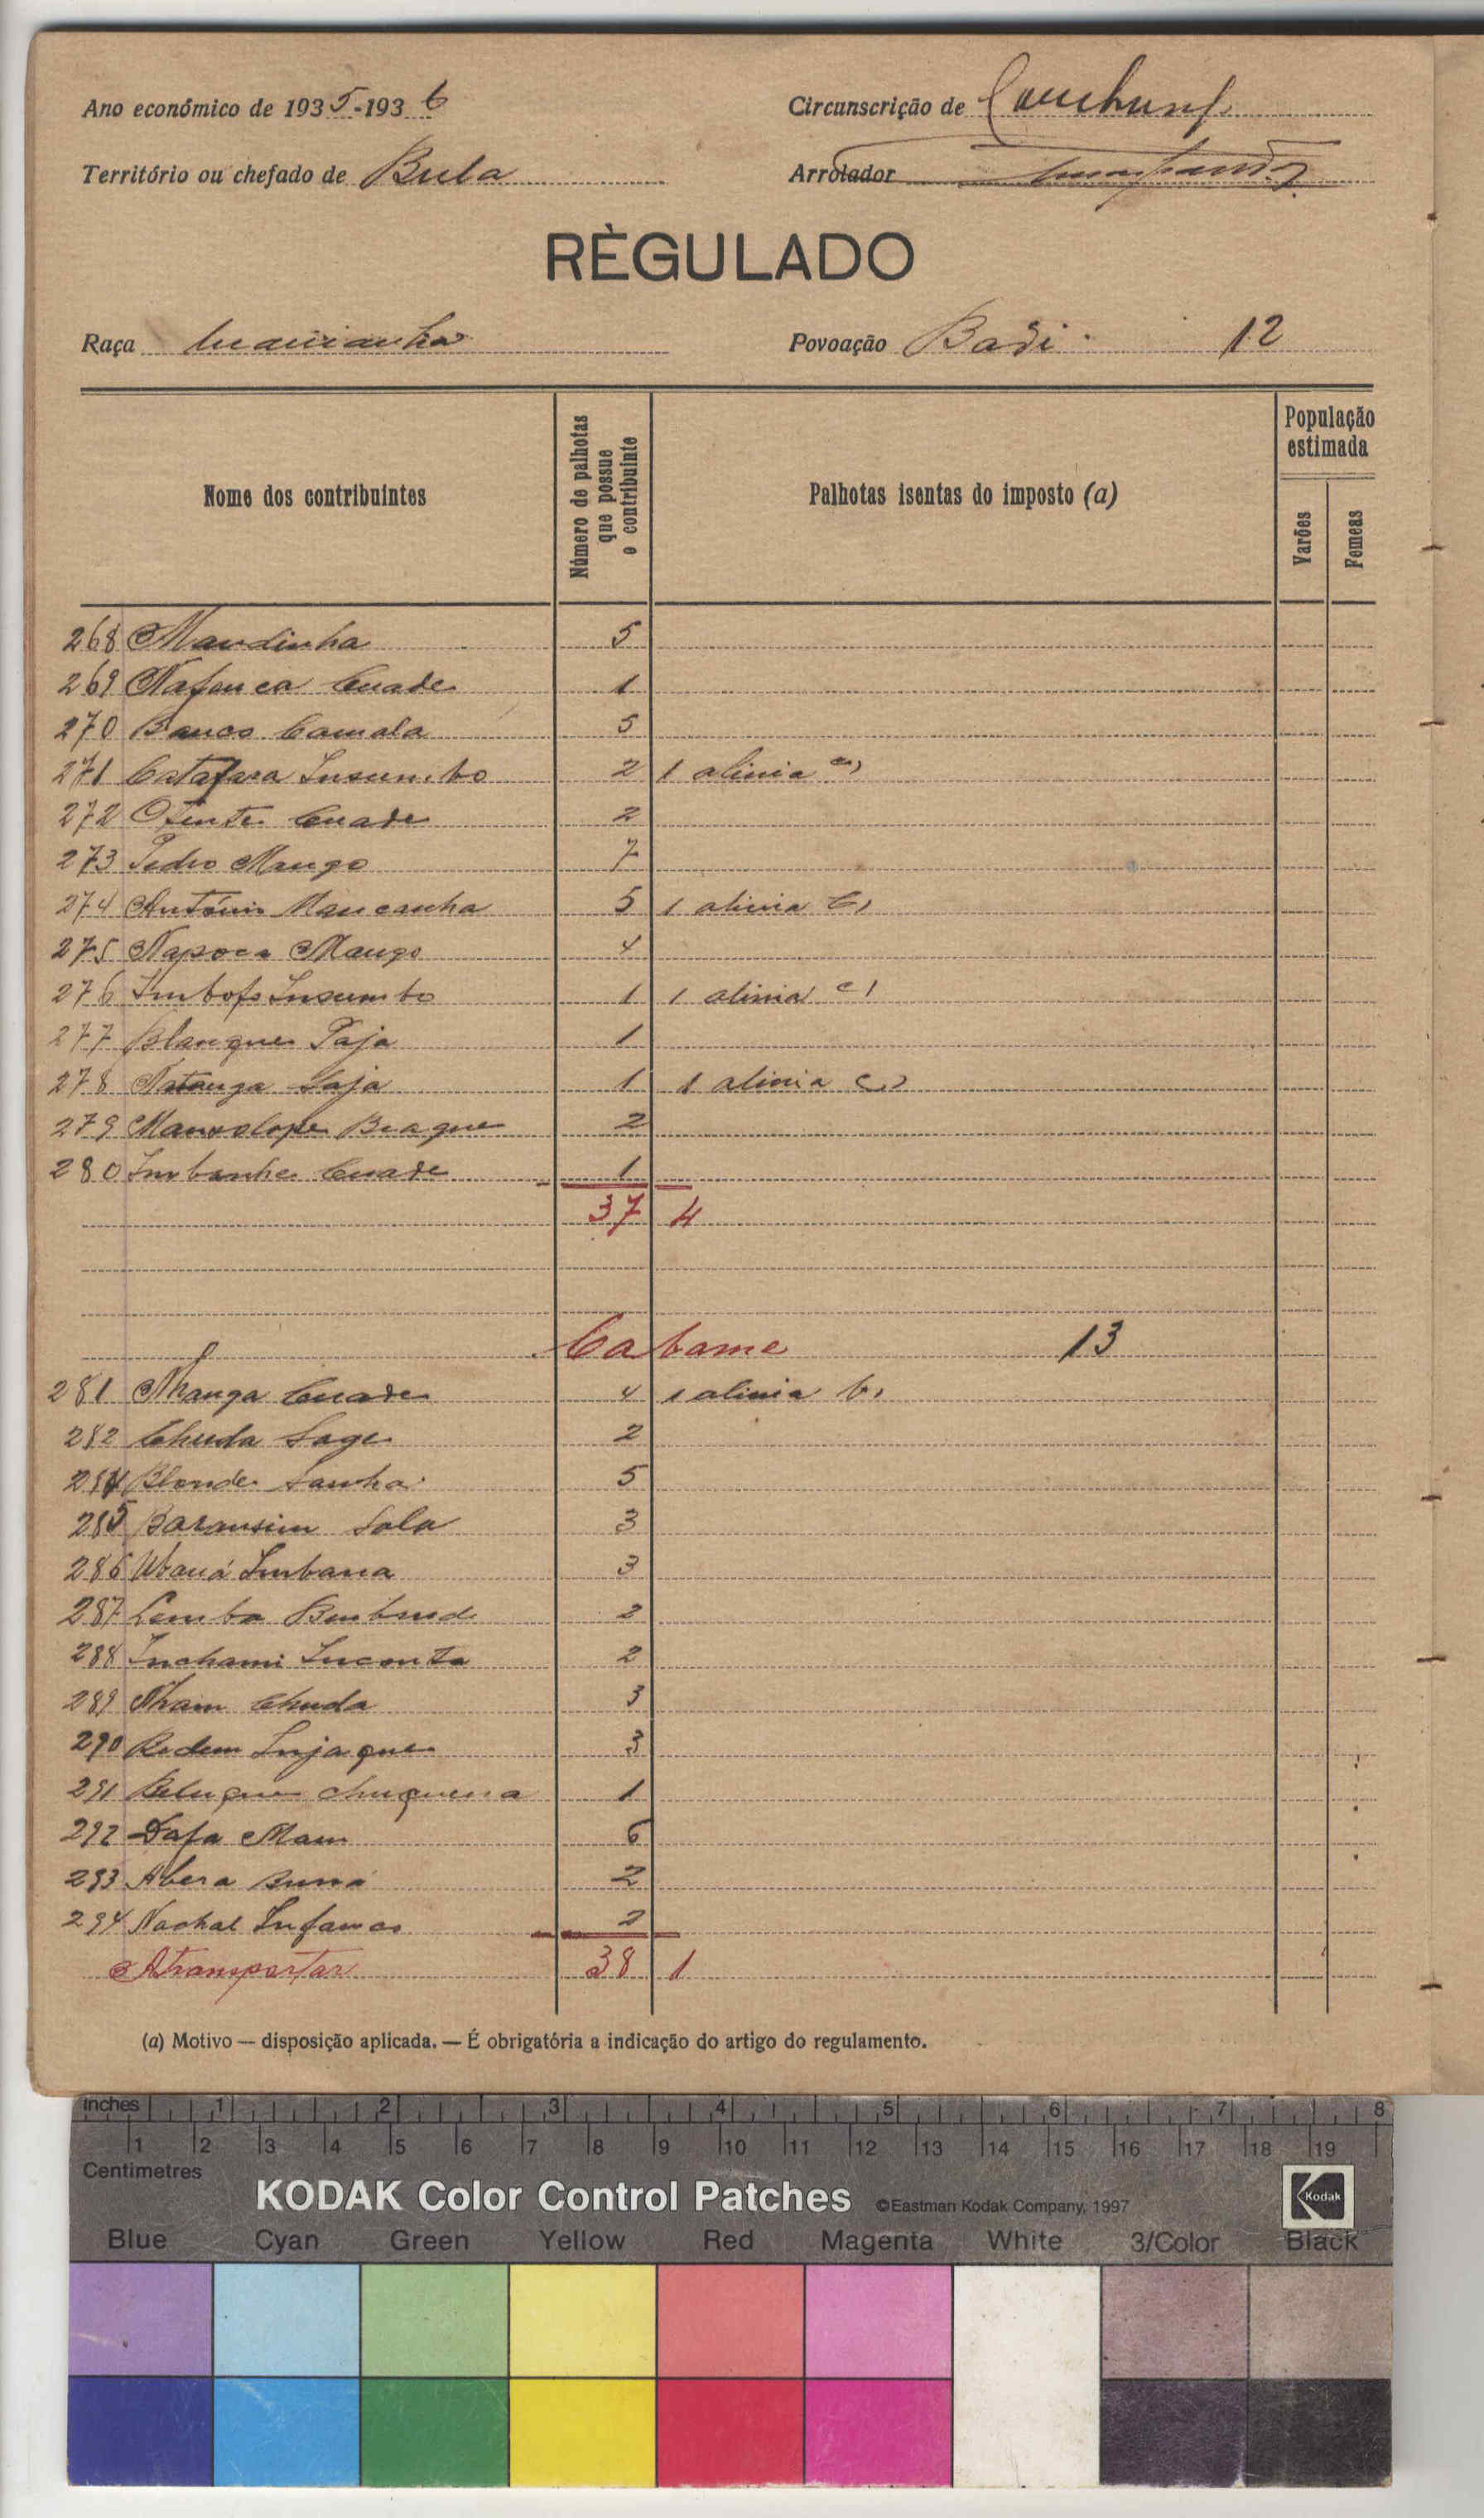 Ano económico de 1935-1936
Circunscrição de
Território ou chefado de Bula
Arrolador
RÈGULADO
Raça Mancanha
Povoação Badi 12
Nome dos contribuintes
Número de palhotas que possue o contribuinte
Palhotas isentas do imposto (a)
População estimada
Varões
Femeas
268 Mandinha 5
269 Nafanca Cuade 1
270 Banca Camala 5
271 Catafara Insumbo 2 1 alinia c)
272 Ofinte Cuade 2
273 Pedro Mango 7
274 António Mancanha 5 1 alinia b)
275 Napoca Mango 4
276 Imbofo Insumbo 1 1 alinia c)
277 Blanque Paja 1
278 Natanga Saja 1 1 alinia c)
279 Braque 2
280 Imbanhe Cuade 1
37 4
Cabame 13
281 Nhanga Cuade 4 1 alinia b)
282 Chuda Sage 2
284 Blonde Sanha 5
285 Baransim Sala 3
286 Imbana 3
287 Lemba 2
288 Inchami Inconta 2
289 Nham Chuda 3
290 Redem Injaque 3
291 Beluque 1
292 Dafa Mam 6
293 Abera 2
294 Nachal Infamas 2
A transportar 38 1
(a) Motivo — disposição aplicada. — É obrigatória a indicação do artigo do regulamento.
Inches 1 2 3 4 5 6 7 8
1 2 3 4 5 6 7 8 9 10 11 12 13 14 15 16 17 18 19
Centimetres
KODAK Color Control Patches ©Eastman Kodak Company, 1997 Kodak
Blue Cyan Green Yellow Red Magenta White 3/Color Black